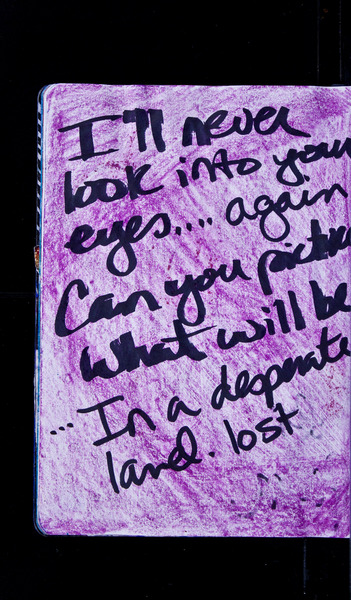 I'll never
look into your
eyes.... again
Can you pictu
what will be
...In a desperate
land. lost